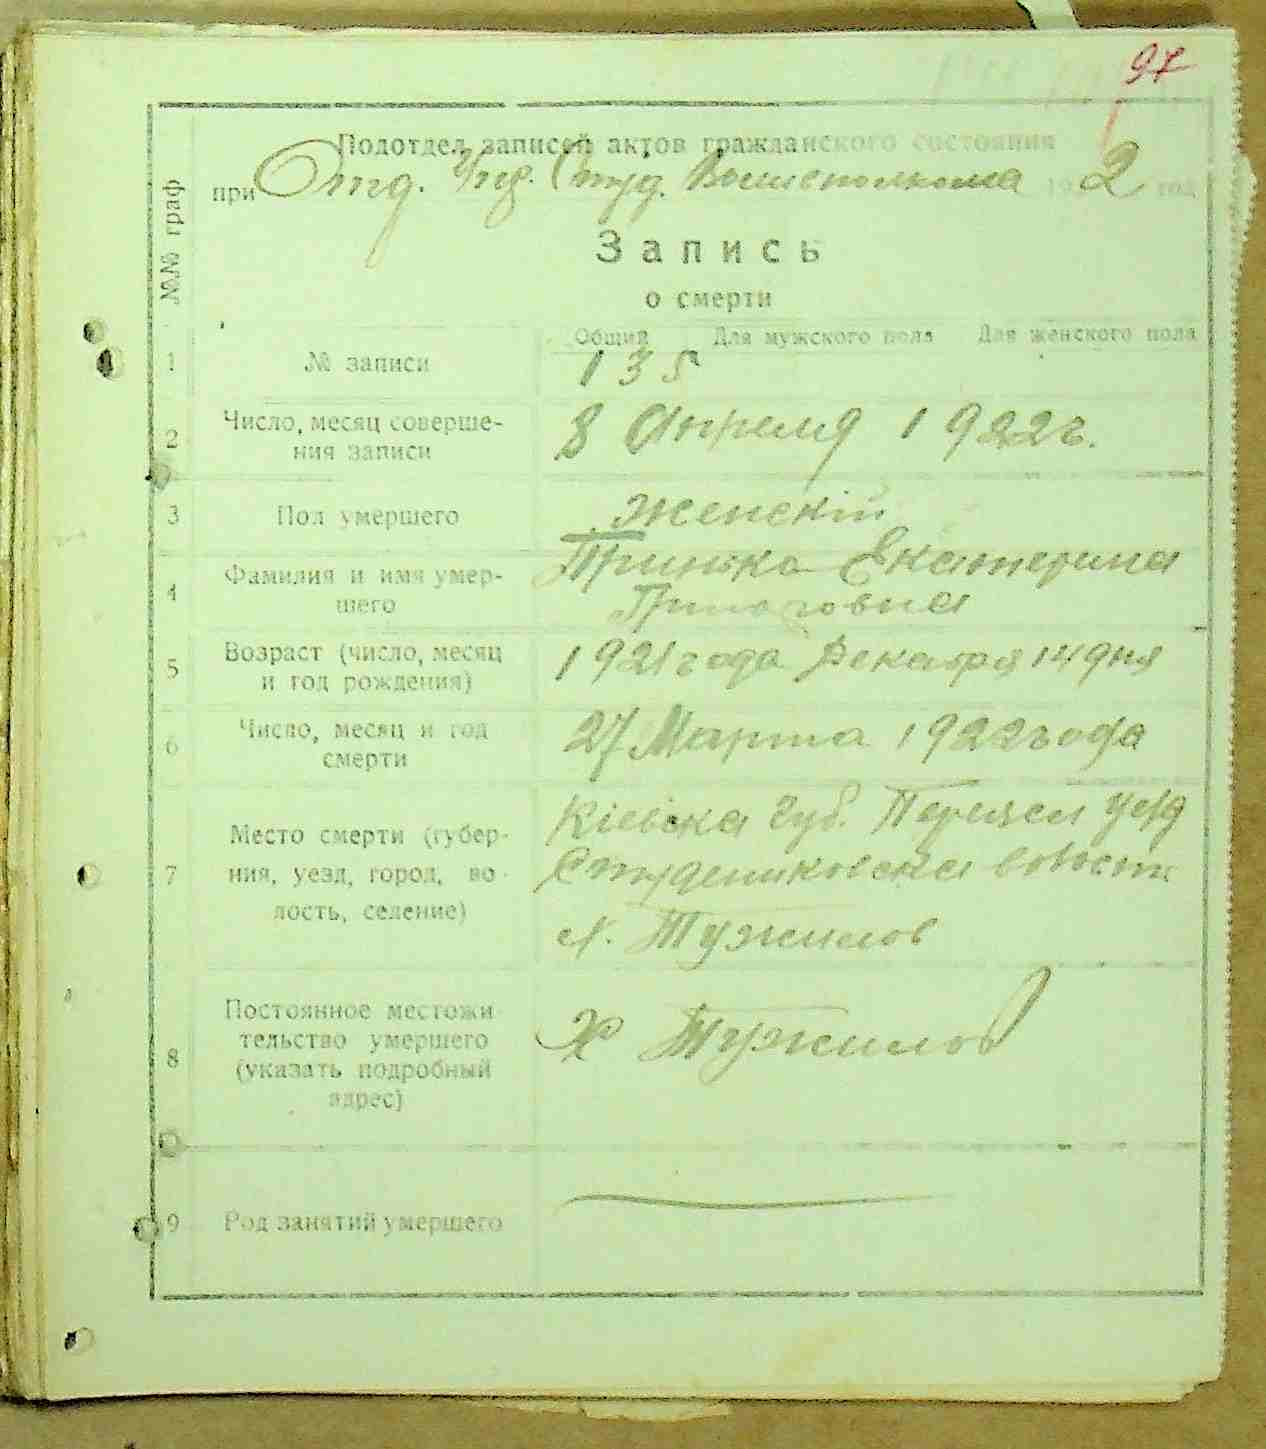 97
Подотдел записей актов гражданского состояния
при Отд. Упр. Студ. Волисполкома 192 2 год
№№ граф
Запись
о смерти
Общий Для мужского пола Для женского пола
1 № записи 135
2 Число, месяц соверше-
ния записи
8 Апреля 1922г.
3 Пол умершего Женскій
4 Фамилия и имя умер-
шего
Принько Екатерина
5 Возраст (число, месяц
и год рождения)
1921 года Декабря 14 дня
6 Число, месяц и год
смерти
27 Марта 1922 года
7 Место смерти (губер-
ния, уезд, город, во-
лость, селение)
Кіевска губ. Переясл уезд
Студениковска волость
х. Тужилов
8 Постоянное местожи
тельство умершего
(указать подробный
адрес)
Х Тужилов
9 Род занятий умершего